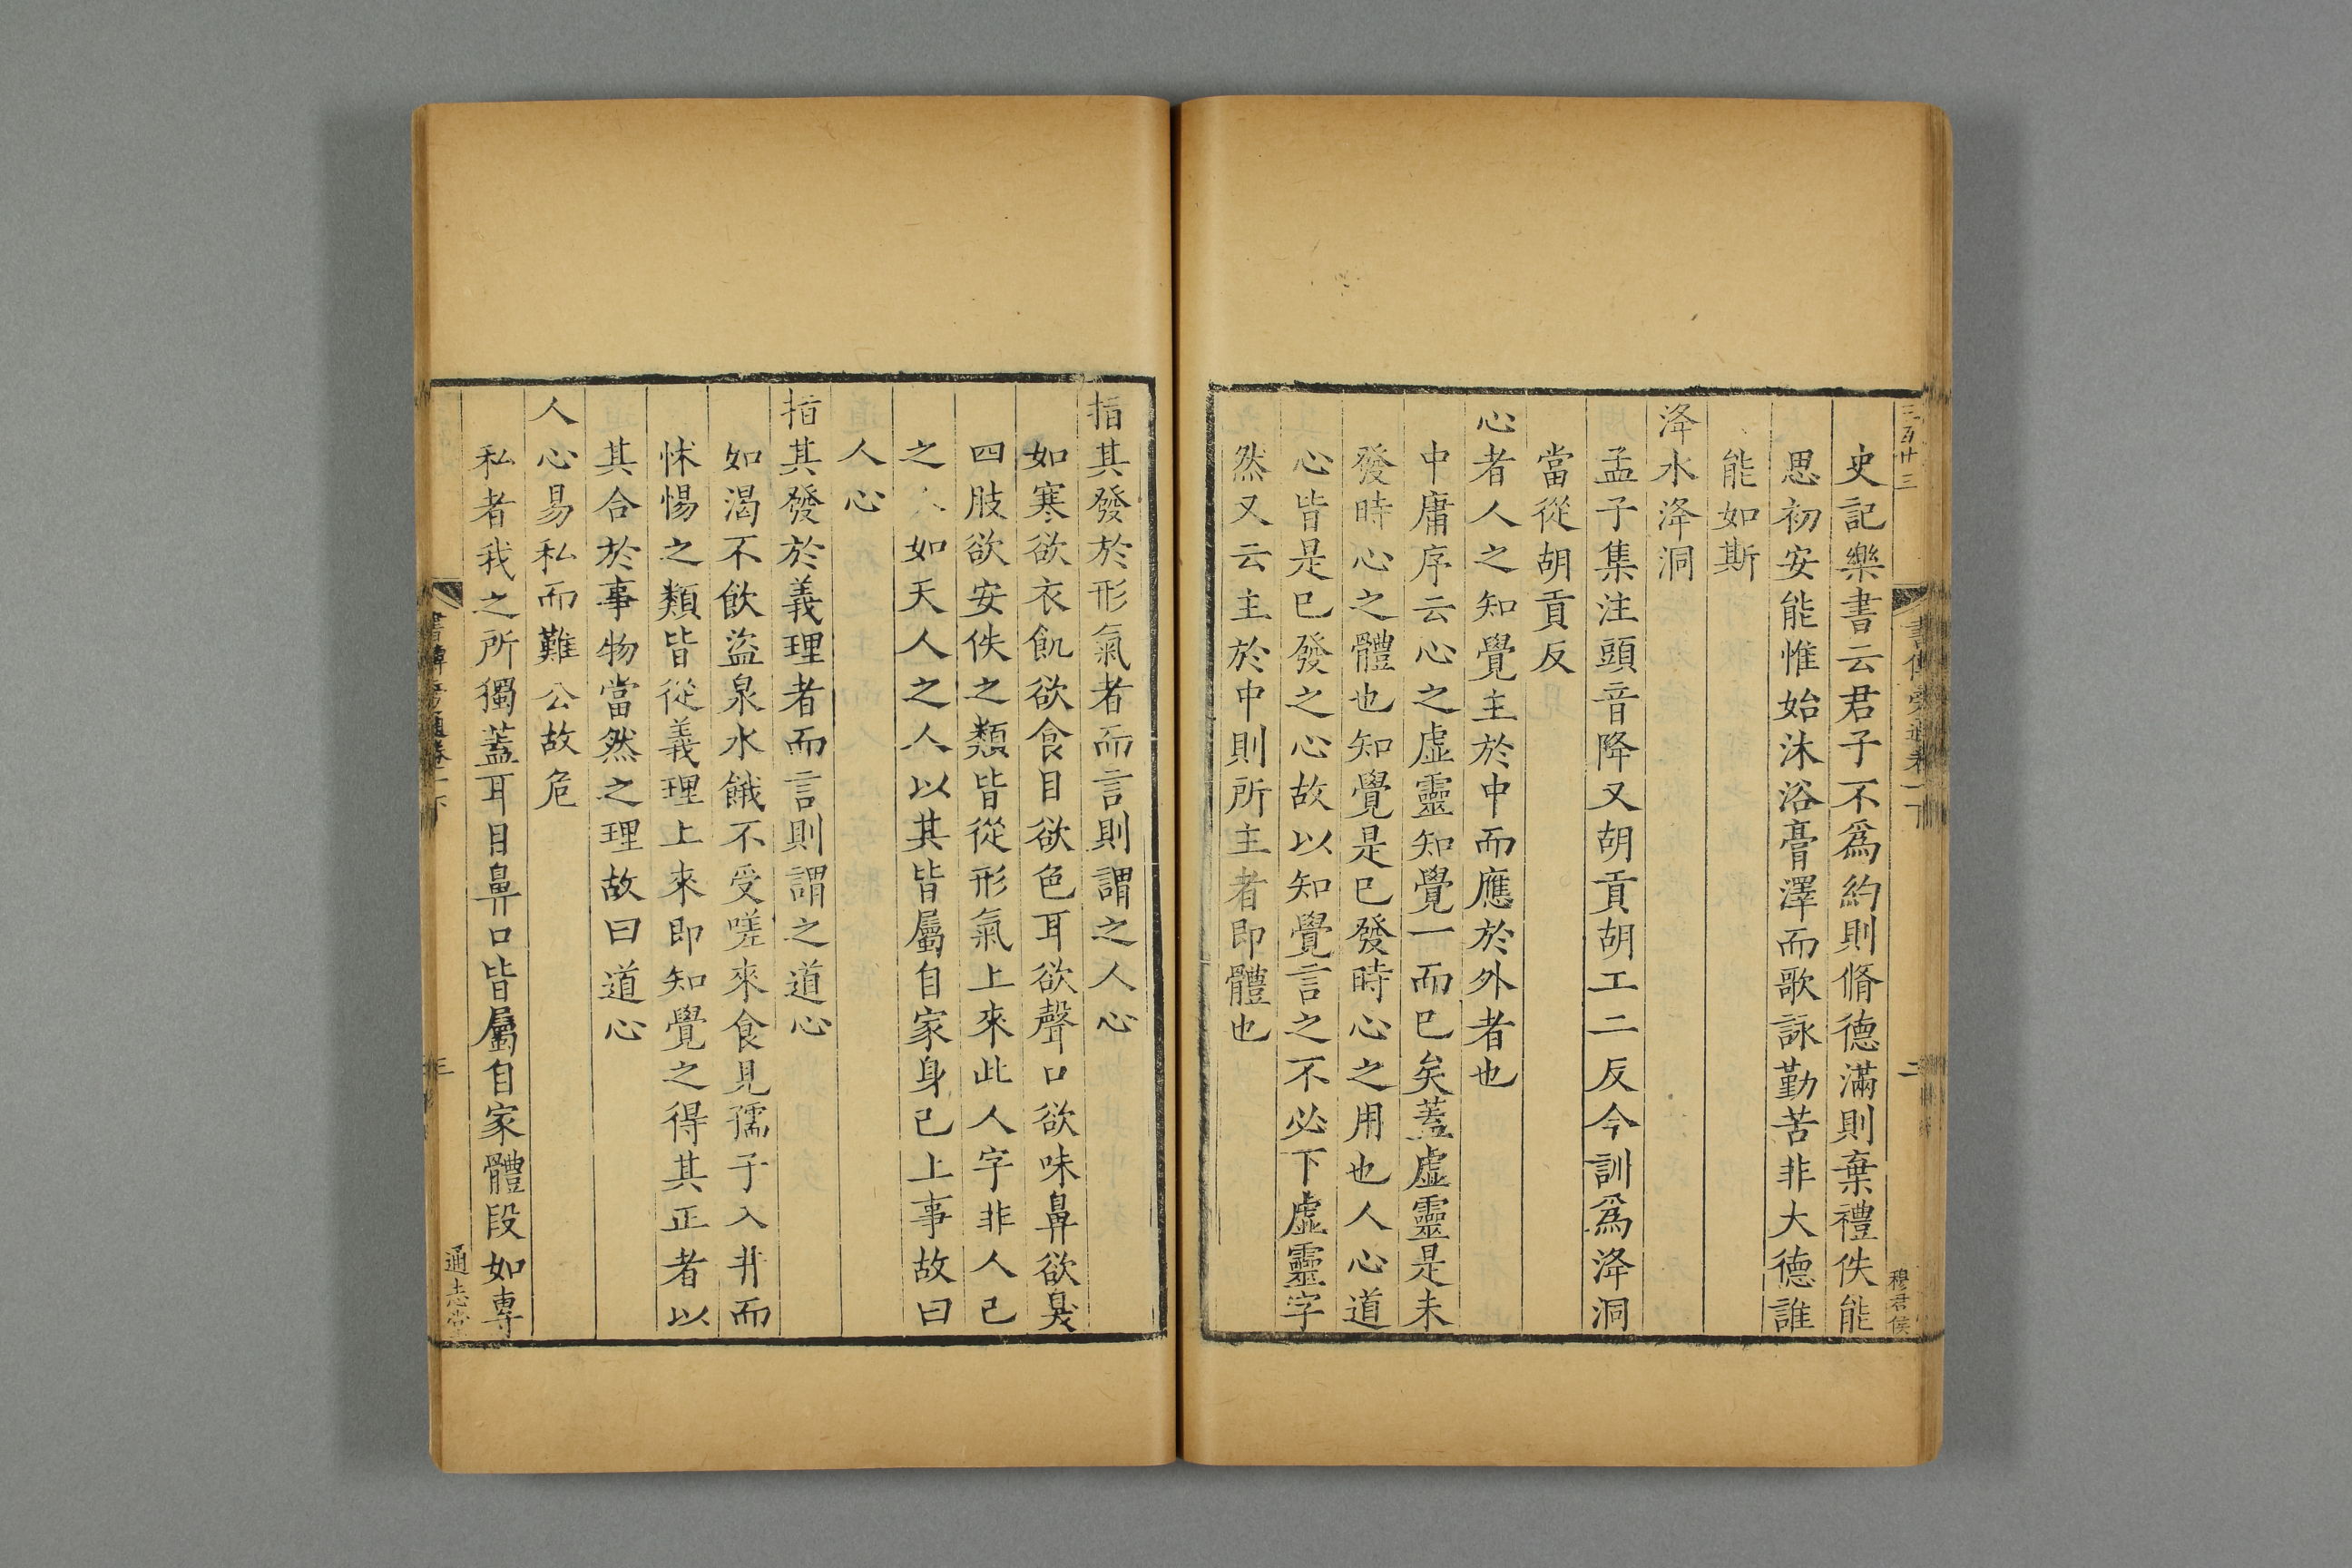 史記樂書云君子不爲約則脩德滿則棄禮佚能
思初安能惟始沐浴膏澤而歌詠勤苦非大德誰
能如斯
洚水洚洞
孟子集注頭音降又胡貢胡工二反今訓爲洚洞
當從胡貢反
心者人之知覺主於中而應於外者也
中庸序云心之虛靈知覺一而已矣蓋虛靈是未
發時心之體也知覺是已發時心之用也人心道
心皆是已發之心故以知覺言之不必下虛靈字
然又云主於中則所主者即體也
二
穆君侯
指其發於形氣者而言則謂之人心
如寒欲衣飢欲食目欲色耳欲聲口欲味鼻欲臭
四肢欲安佚之類皆從形氣上來此人字非人己
之人如天人之人以其皆屬自家身己上事故曰
人心
指其發於義理者而言則謂之道心
如渴不飲盜泉水餓不受嗟來食見孺子入井而
怵惕之類皆從義理上來即知覺之得其正者以
其合於事物當然之理故曰道心
人心易私而難公故危
私者我之所獨蓋耳目鼻口皆屬自家體段如專
三
通志堂